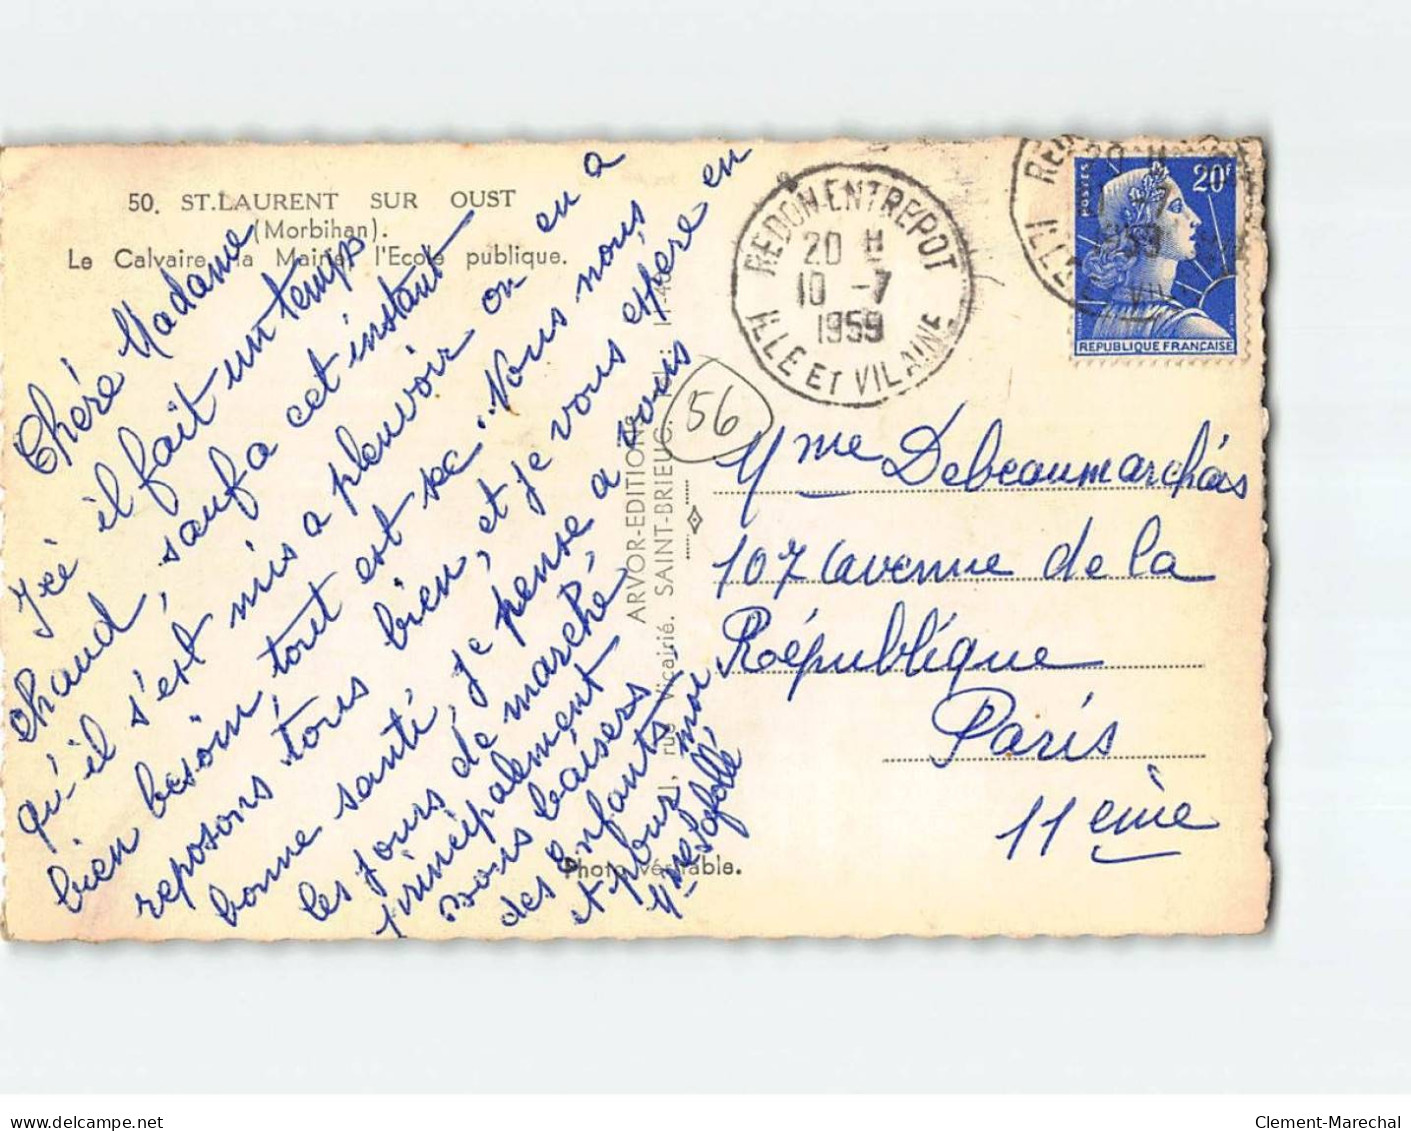 50. ST.LAURENT SUR OUST
(Morbihan).
Le Calvaire, la Mairie, l'Ecole publique.
Chéré Madame
Icé il fait un temps
chaud, sauf a cet instant
qu'il s'est mis a pleuvoir on en a
bien besoin, tout est sec. Vous nous
reposons tous bien, et je vous espère en
bonne santé, je pense a vous
les jours de marché,
principalement
bons baisers
des Enfants
et pour moi
Mme
ARVOR-EDITIONS
rue Vicairie. SAINT-BRIEUC.
Photo véritable.
REDON ENTREPOT
20 H
10 -7
1959
ILLE ET VILAINE
56
POSTES
20F
REPUBLIQUE FRANÇAISE
Mme Debeaumarchais
107 avenue de la
République
Paris
11 eme
Clement-Marechal